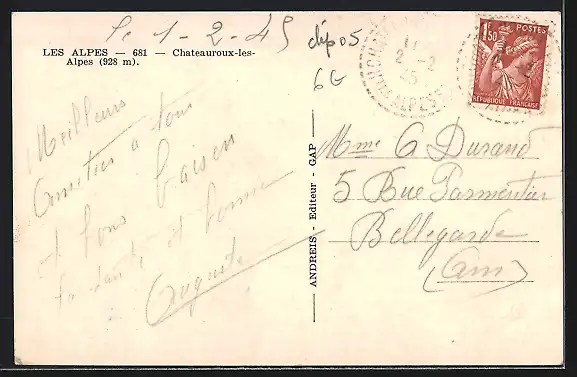 Le 1-2-45
LES ALPES — 681 — Chateauroux-les-
Alpes (928 m).
dép 05
6G
11
2 -2
45
ALPES
POSTES
1F50
RÉPUBLIQUE FRANÇAISE
Meilleurs
Amitiés à tous
et bons baisers
santé, et bonne
Auguste
ANDREIS - Editeur - GAP
Mme G Durand
5 Rue Parmentier
Bellegarde
(Ain)